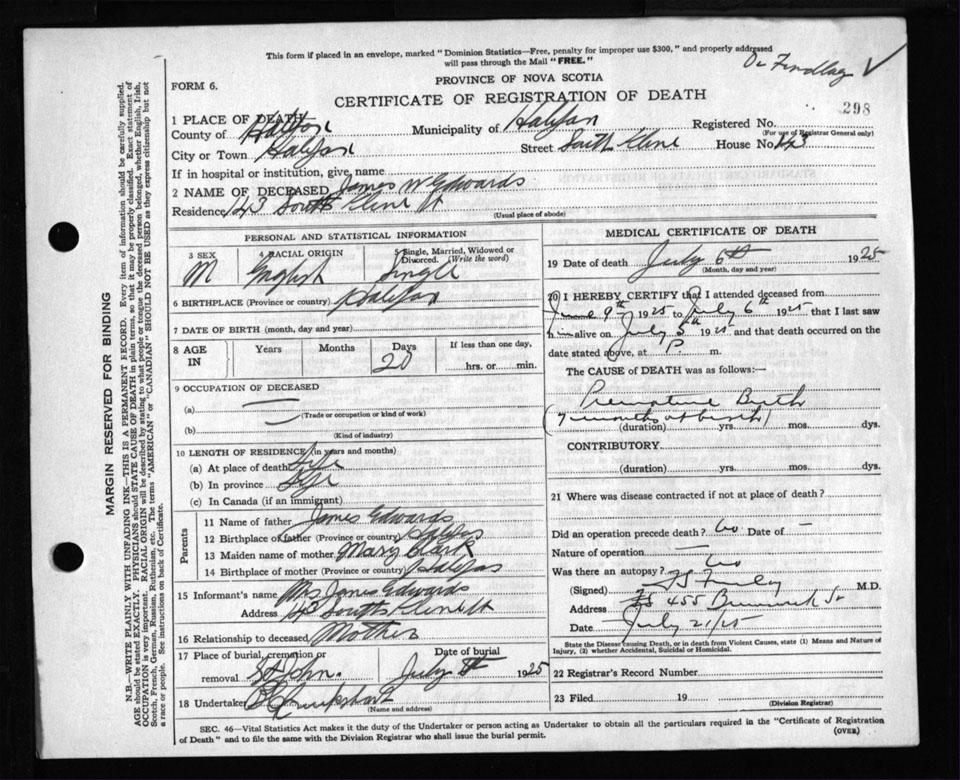 This form if placed in an envelope, marked "Dominion Statistics—Free, penalty for improper use $300," and properly addressed
will pass through the Mail "FREE."
Dr Findlay
FORM 6.
PROVINCE OF NOVA SCOTIA
CERTIFICATE OF REGISTRATION OF DEATH
298
1 PLACE OF DEATH
County of Halifax Municipality of Halifax Registered No.
(For use of Registrar General only)
City or Town Halifax Street South Kline House No. 143
If in hospital or institution, give name
2 NAME OF DECEASED James W Edwards
Residence 143 South Kline St
(Usual place of abode)
PERSONAL AND STATISTICAL INFORMATION
3 SEX 4 RACIAL ORIGIN 5 Single, Married, Widowed or Divorced. (Write the word)
M English Single
6 BIRTHPLACE (Province or country) Halifax
7 DATE OF BIRTH (month, day and year)
8 AGE IN Years Months Days If less than one day,
20 hrs. or min.
9 OCCUPATION OF DECEASED
(a) —
(Trade or occupation or kind of work)
(b)
(Kind of industry)
10 LENGTH OF RESIDENCE (in years and months)
(a) At place of death Life
(b) In province Life
(c) In Canada (if an immigrant)
Parents
11 Name of father James Edwards
12 Birthplace of father (Province or country) Halifax
13 Maiden name of mother Mary Clark
14 Birthplace of mother (Province or country) Halifax
15 Informant's name Mrs James Edwards
Address 143 South Kline St
16 Relationship to deceased Mother
17 Place of burial, cremation or removal St John. Date of burial July 1925
18 Undertaker Cruikshank
(Name and address)
MEDICAL CERTIFICATE OF DEATH
19 Date of death July 6th 1925
(Month, day and year)
20 I HEREBY CERTIFY that I attended deceased from
June 9th 1925 to July 6th 1925 that I last saw
him alive on July 5th 1925 and that death occurred on the
date stated above, at P. m.
The CAUSE of DEATH was as follows:—
Premature Birth
(7 months at birth)
(duration) yrs. mos. dys.
CONTRIBUTORY
(duration) yrs. mos. dys.
21 Where was disease contracted if not at place of death?
Did an operation precede death? No Date of —
Nature of operation —
Was there an autopsy? No
(Signed) M.D.
Address 455 Brunswick St
Date July 21/25
State the Disease causing Death, or in death from Violent Causes, state (1) Means and Nature of
Injury, (2) whether Accidental, Suicidal or Homicidal.
22 Registrar's Record Number
23 Filed 19
(Division Registrar)
SEC. 46—Vital Statistics Act makes it the duty of the Undertaker or person acting as Undertaker to obtain all the particulars required in the "Certificate of Registration
of Death" and to file the same with the Division Registrar who shall issue the burial permit.
(OVER)
MARGIN RESERVED FOR BINDING
N.B.—WRITE PLAINLY WITH UNFADING INK—THIS IS A PERMANENT RECORD. Every item of information should be carefully supplied.
AGE should be stated EXACTLY. PHYSICIANS should STATE CAUSE OF DEATH in plain terms, so that it may be properly classified. Exact statement of
OCCUPATION is very important. RACIAL ORIGIN will be described by stating to what people or tongue the deceased person belonged, whether English, Irish,
Scotch, French, German, Russian, Ruthenian, etc. The terms "AMERICAN" or "CANADIAN" SHOULD NOT BE USED as they express citizenship but not
a race or people. See instructions on back of Certificate.